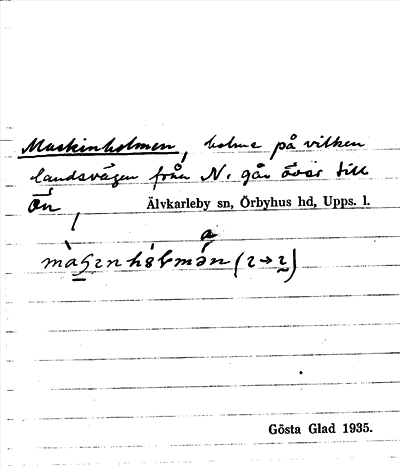 Maskinholmen, holme på vilken
landsvägen från N. går över till
Ön
Älvkarleby sn, Örbyhus hd, Upps. l.
Gösta Glad 1935.